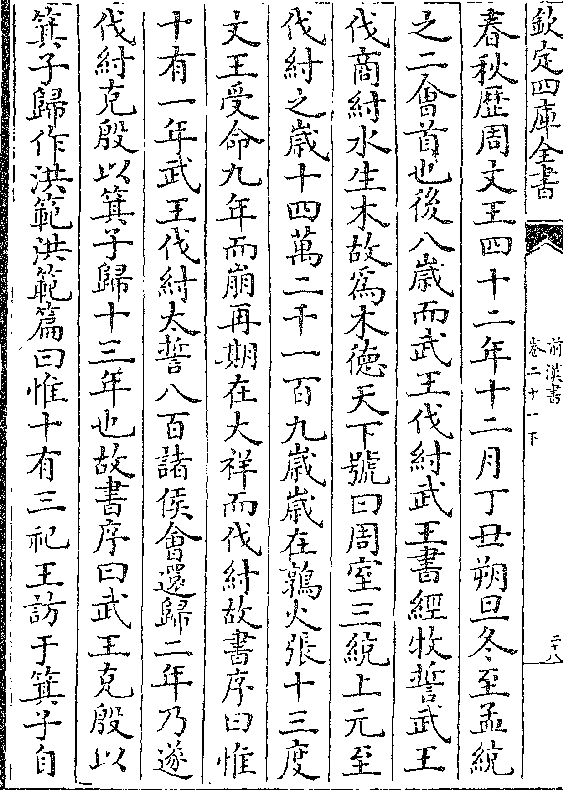 欽定四庫全書
前漢書
卷二十一下
二十八
春秋歴周文王四十二年十二月丁丑朔旦冬至孟統
之二會首也後八嵗而武王伐紂武王書經牧誓武王
伐商紂水生木故為木徳天下號曰周室三統上元至
伐紂之嵗十四萬二千一百九嵗嵗在鶉火張十三度
文王受命九年而崩再期在大祥而伐紂故書序曰惟
十有一年武王伐紂太誓八百諸侯會還歸二年乃遂
伐紂克殷以箕子歸十三年也故書序曰武王克殷以
箕子歸作洪範洪範篇曰惟十有三祀王訪于箕子自